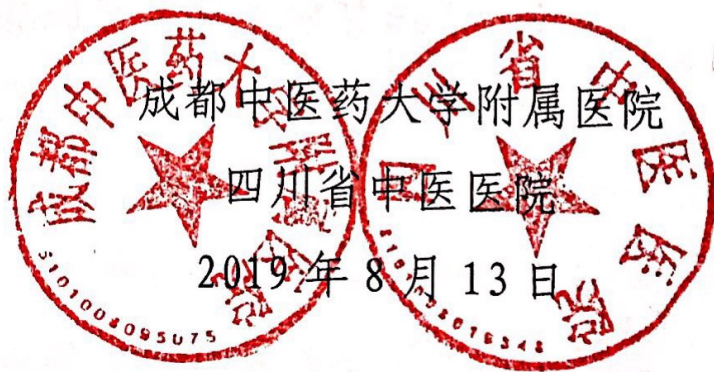 成都中医药大学附属医院
四川省中医医院
2019年8月13日
成都中医药大学附属医院
5101008095075
四川省中医医院